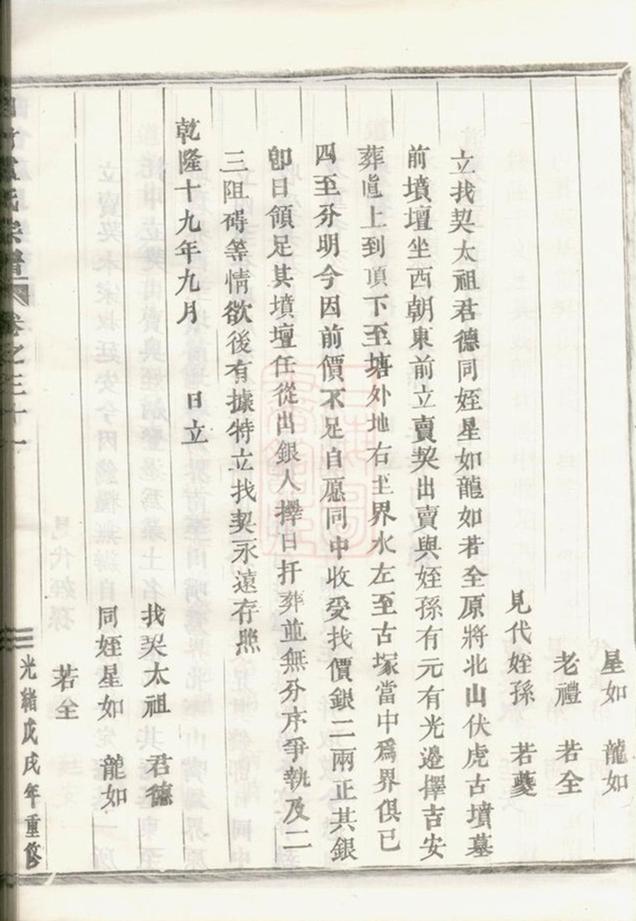 星如　龍如
老禮　若全
見代姪孫　若夔
立找契太祖君德同姪星如龍如若全原將北山伏虎古墳墓
前墳壇坐西朝東前立賣契出賣與姪孫有元有光邊擇吉安
葬眞上到頂下至塘外地右至界水左至古塚當中爲界俱已
四至分明今因前價不足自愿同中收受找價銀二兩正其銀
卽日領足其墳壇任從出銀人擇日扦葬並無分爭執及二
三阻碍等情欲後有據特立找契永遠存照
乾隆十九年九月　日立
找契太祖　君德
同姪星如　龍如
若全
氏宗譜　卷之三十一　光緒戊戌年重修